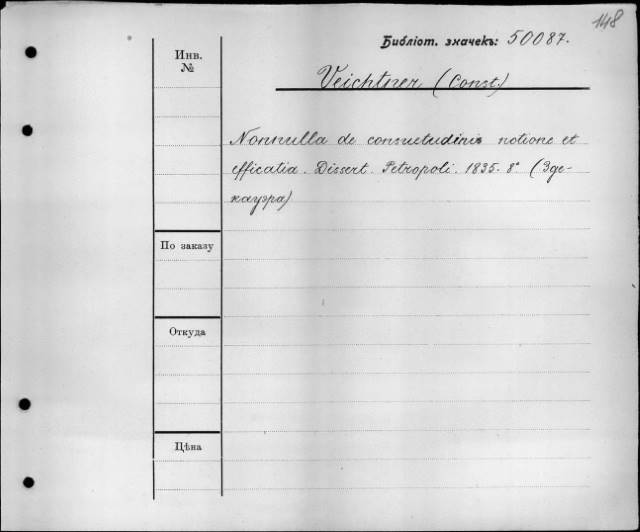 148
Библіот. значекъ: 50087.
Инв.
№
Veichtner (Const.)
Nonnulla de consuetudinis notione et
efficatia. Dissert. Petropoli. 1835. 8° (Зде-
кауэра)
По заказу
Откуда
Цѣна